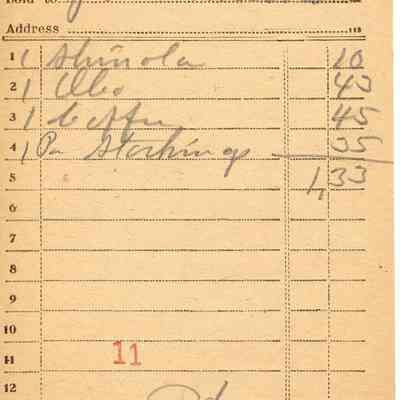 Sold to
Address 113
1 1 Shinola 10
2 1 Oleo 43
3 1 Coffee 45
4 1 Pr Stockings 35
5 1,33
6
7
8
9
10
11 11
12 Pd